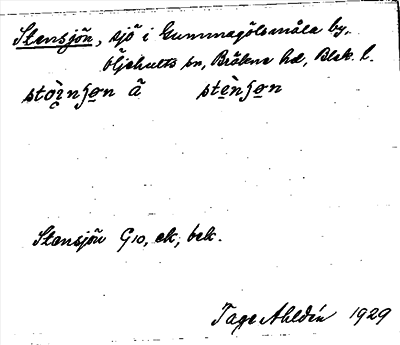 Stensjön, sjö i Gummagölsmåla by,
Öljehults sn, Bräkne hd, Blek. l.
stòi̯nʃo̲n ã stè̲nʃo̲n
Stensjön G10, ek, bek.
Tage Ahldén 1929